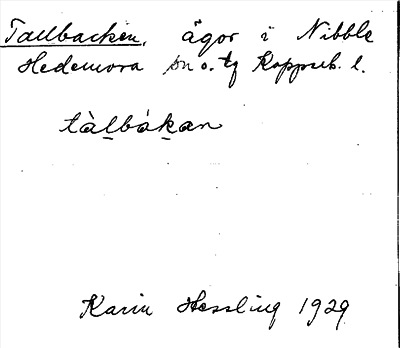 Tallbacken, ägor i Nibble
Hedemora sn o. tg Kopparb. l.
tàlbákan
Karin Hessling 1929